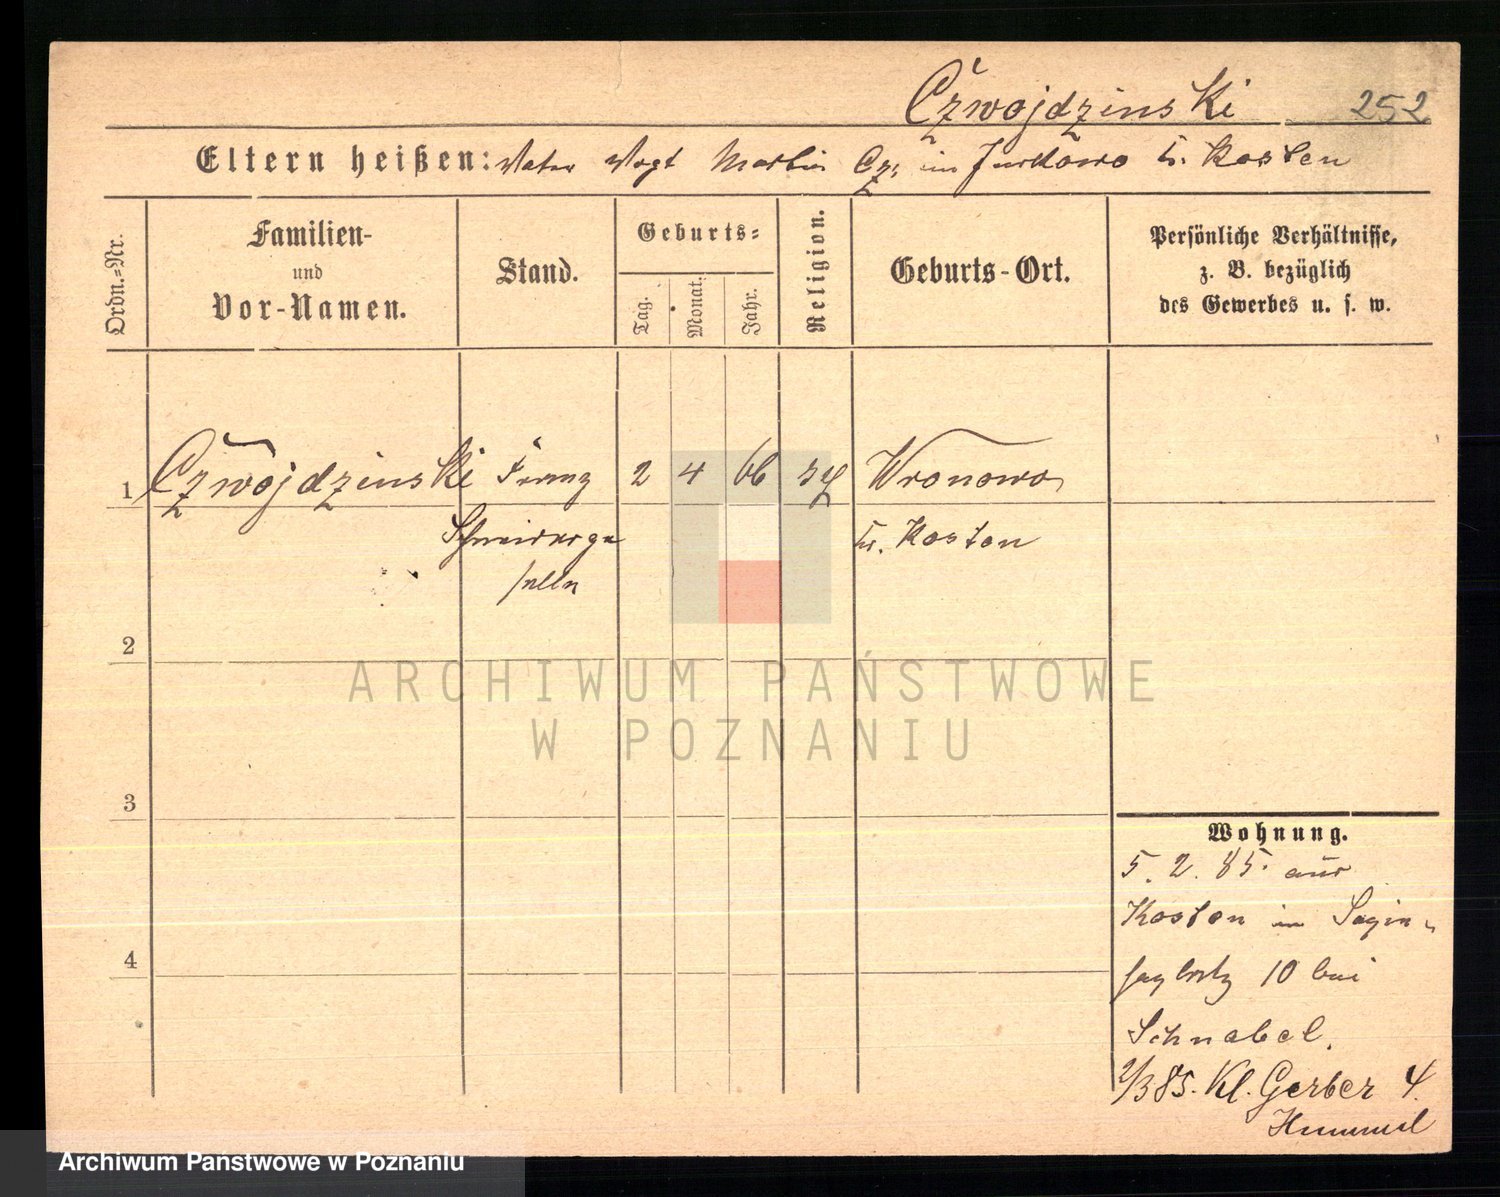 Czwojdzinski 252
Eltern heißen: Vater Vogt Martin Cz. in Jurkowo Kr. Kosten
Ordn.-Nr.
Familien-
und
Vor-Namen.
Stand.
Geburts-
Tag.
Monat.
Jahr.
Religion.
Geburts-Ort.
Persönliche Verhältnisse,
z. B. bezüglich
des Gewerbes u. s. w.
1 Czwojdzinski Franz 2 4 66 Wronowo
Schneiderge Kr. Kosten
selle
2
ARCHIWUM PAŃSTWOWE
W POZNANIU
3
4
Wohnung.
5. 2. 85. aus
Kosten in
10 bei
Schnabel.
2/3 85. Kl. Gerber 4.
Hummel
Archiwum Państwowe w Poznaniu